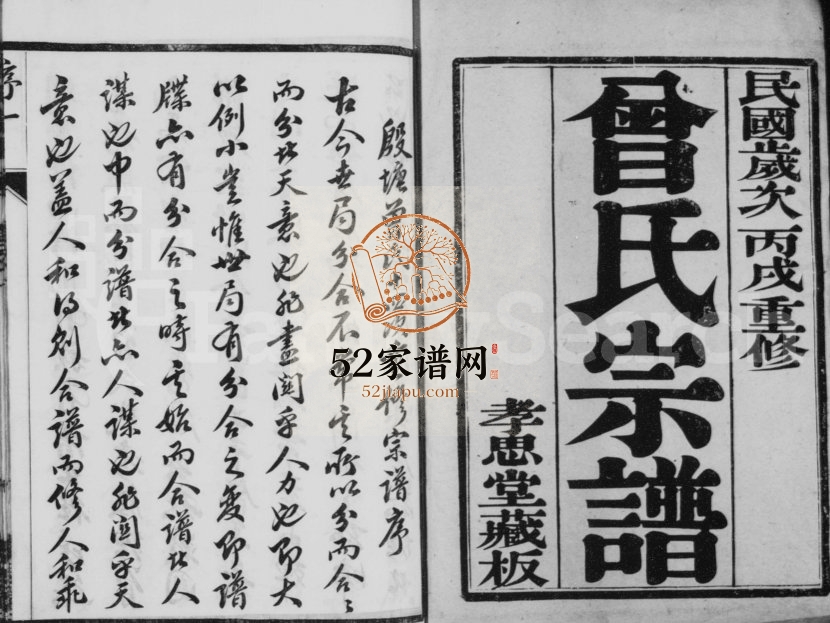 民國歲次丙戌重修
曾氏宗譜
孝思堂藏板
殷塘曾氏修宗譜序
古今世局分合不常其所以分而合〻
而分者天意也非盡関乎人力也即大
以例小豈惟世局有分合之变即譜
牒亦有分合之時其始而合譜者人
謀也中而分譜者亦人謀也非関乎天
意也蓋人和乃刱合譜而修人和乖
序一
52家谱网
52jiapu.com
FamilySearch